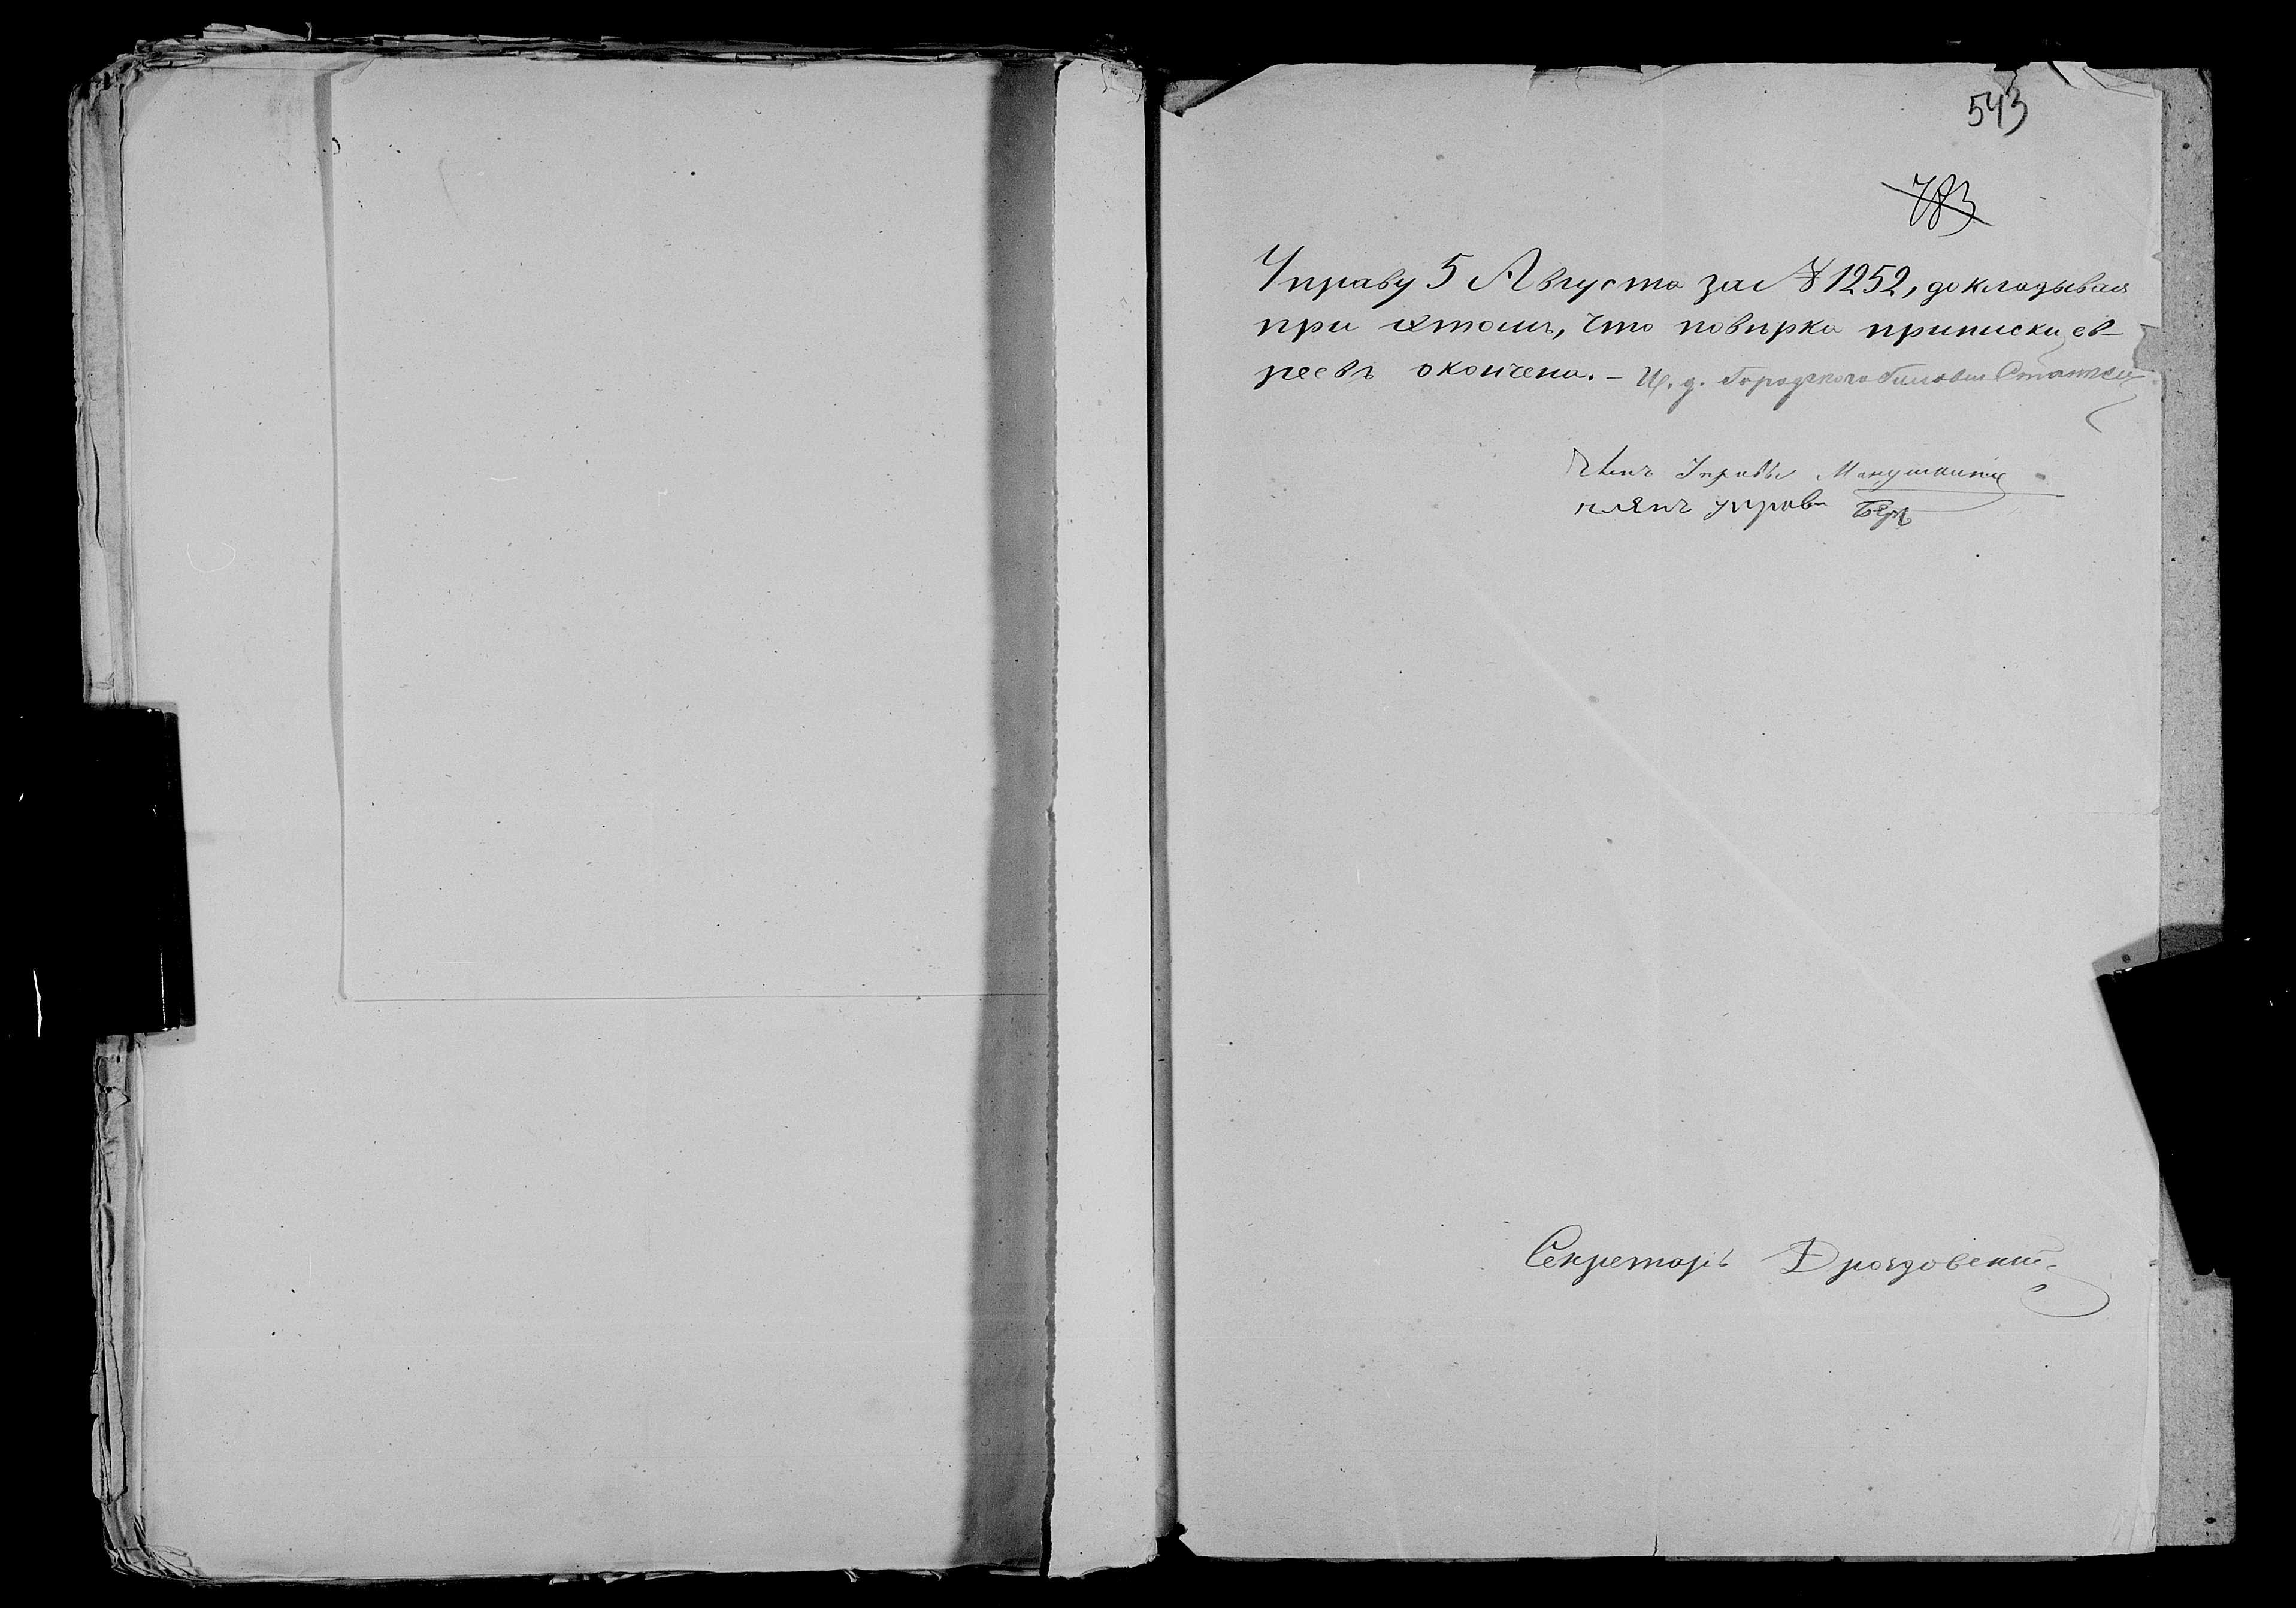 543
783
Управу 5 Августа за № 1252, докладывая
при этомъ, что повѣрка приписки ев-
реевъ окончена. – И. д. Городского Головы
Членъ Управы
членъ управы
Секретарь Дроздовскій